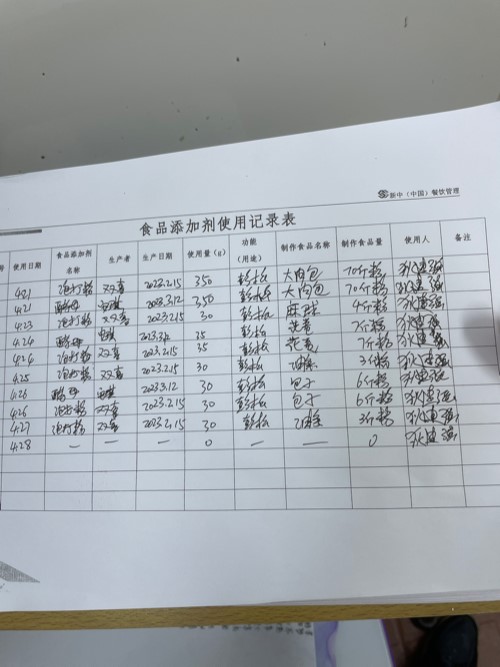 新中（中国）餐饮管理
食品添加剂使用记录表
号 使用日期 食品添加剂名称 生产者 生产日期 使用量（g） 功能（用途） 制作食品名称 制作食品量 使用人 备注
4.21 泡打粉 双喜 2023.2.15 350 膨松 大肉包 70斤粉
4.21 酵母 2023.3.12 350 膨松 大肉包 70斤粉
4.23 泡打粉 双喜 2023.2.15 30 膨松 麻球 4斤粉
4.24 酵母 2023.3.12 35 膨松 7斤粉
4.24 泡打粉 双喜 2023.2.15 35 膨松 7斤粉
4.25 泡打粉 双喜 2023.2.15 30 膨松 3斤粉
4.26 酵母 2023.3.12 30 膨松 包子 6斤粉
4.26 泡打粉 双喜 2023.2.15 30 膨松 包子 6斤粉
4.27 泡打粉 双喜 2023.2.15 30 膨松 3斤粉
4.28 — — — 0 — — 0